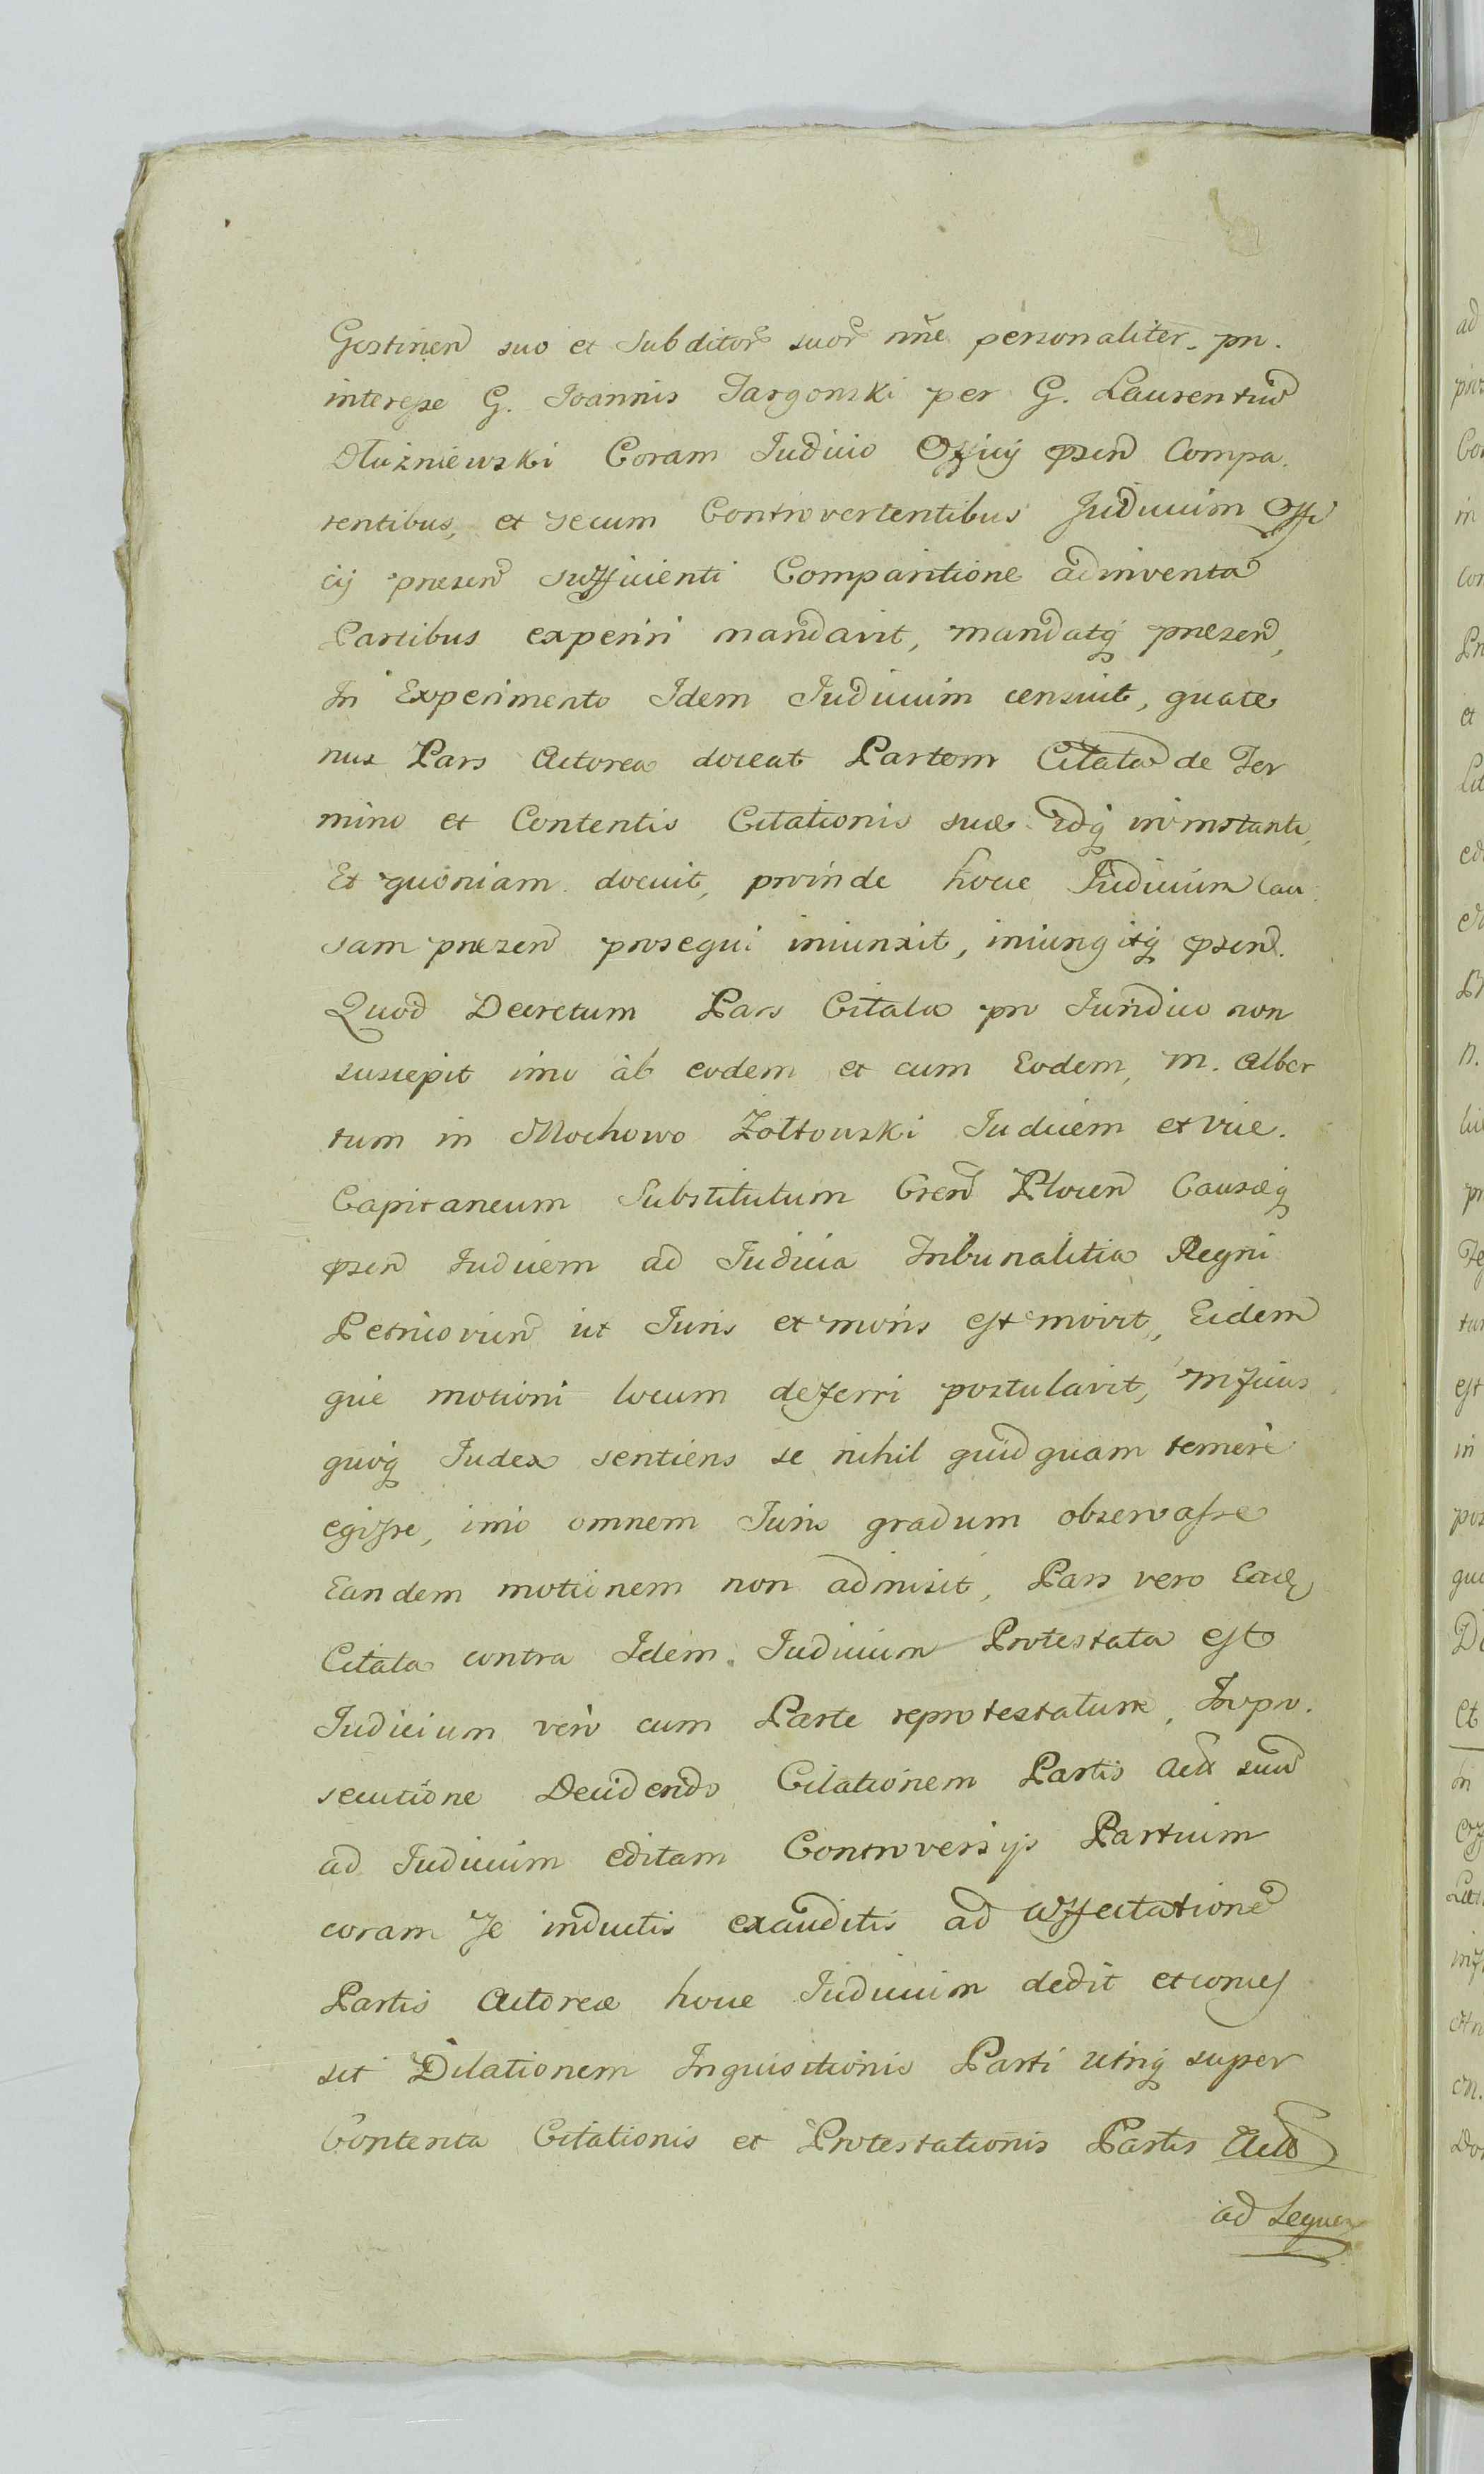 Gostinen suo et Subditor suor nne personaliter pn.
interesse G. Joannis Targonski per G. Laurentiu
Dłużniewski Coram Judicio Officij psen Compa.
rentibus, et secum Controvertentibus Judicium Offi
cij praesen sufficienti Comparitione adinventa
Partibus experiri mandavit, mandatq praesen,
In Experimento Idem Judicium censuit, quate
nus Pars Actorea doceat Partem Citata de Ter
mino et Contentis Citationis suae idq in instanti,
Et quoniam docuit, proinde hocce Judicium Cau
sam praesen prosequi iniunxit, iniungitq psen.
Quod Decretum Pars Citata pro Juridico non
suscepit imo ab eodem et cum Eodem, M. Alber
tum in Mochowo Zołtowski Judicem et vice.
Capitaneum Substitutum Cren Plocen Causaeq
psen Judicem ad Judicia Tribunalitia Regni
Petricovien ut Juris et moris est movit, Eidem
que motioni locum deferri postulavit,
quoq Judex sentiens se nihil quidquam temere
egisse, imo omnem Juris gradum observasse
Eandem motionem non admisit, Pars vero Eade
Citata contra Idem Judicium Protestata est
Judicium vero cum Parte reprotestatum, In pro.
secutione Decidendo Citationem Partis Act suam
ad Judicium editam Controversijs Partium
coram se inductis exauditis ad affectatione
Partis Actoreae hocce Judicium dedit et conces
sit Dilationem Inquisitionis Parti utriq super
Contenta Citationis et Protestationis Partis Act
ad Sequen